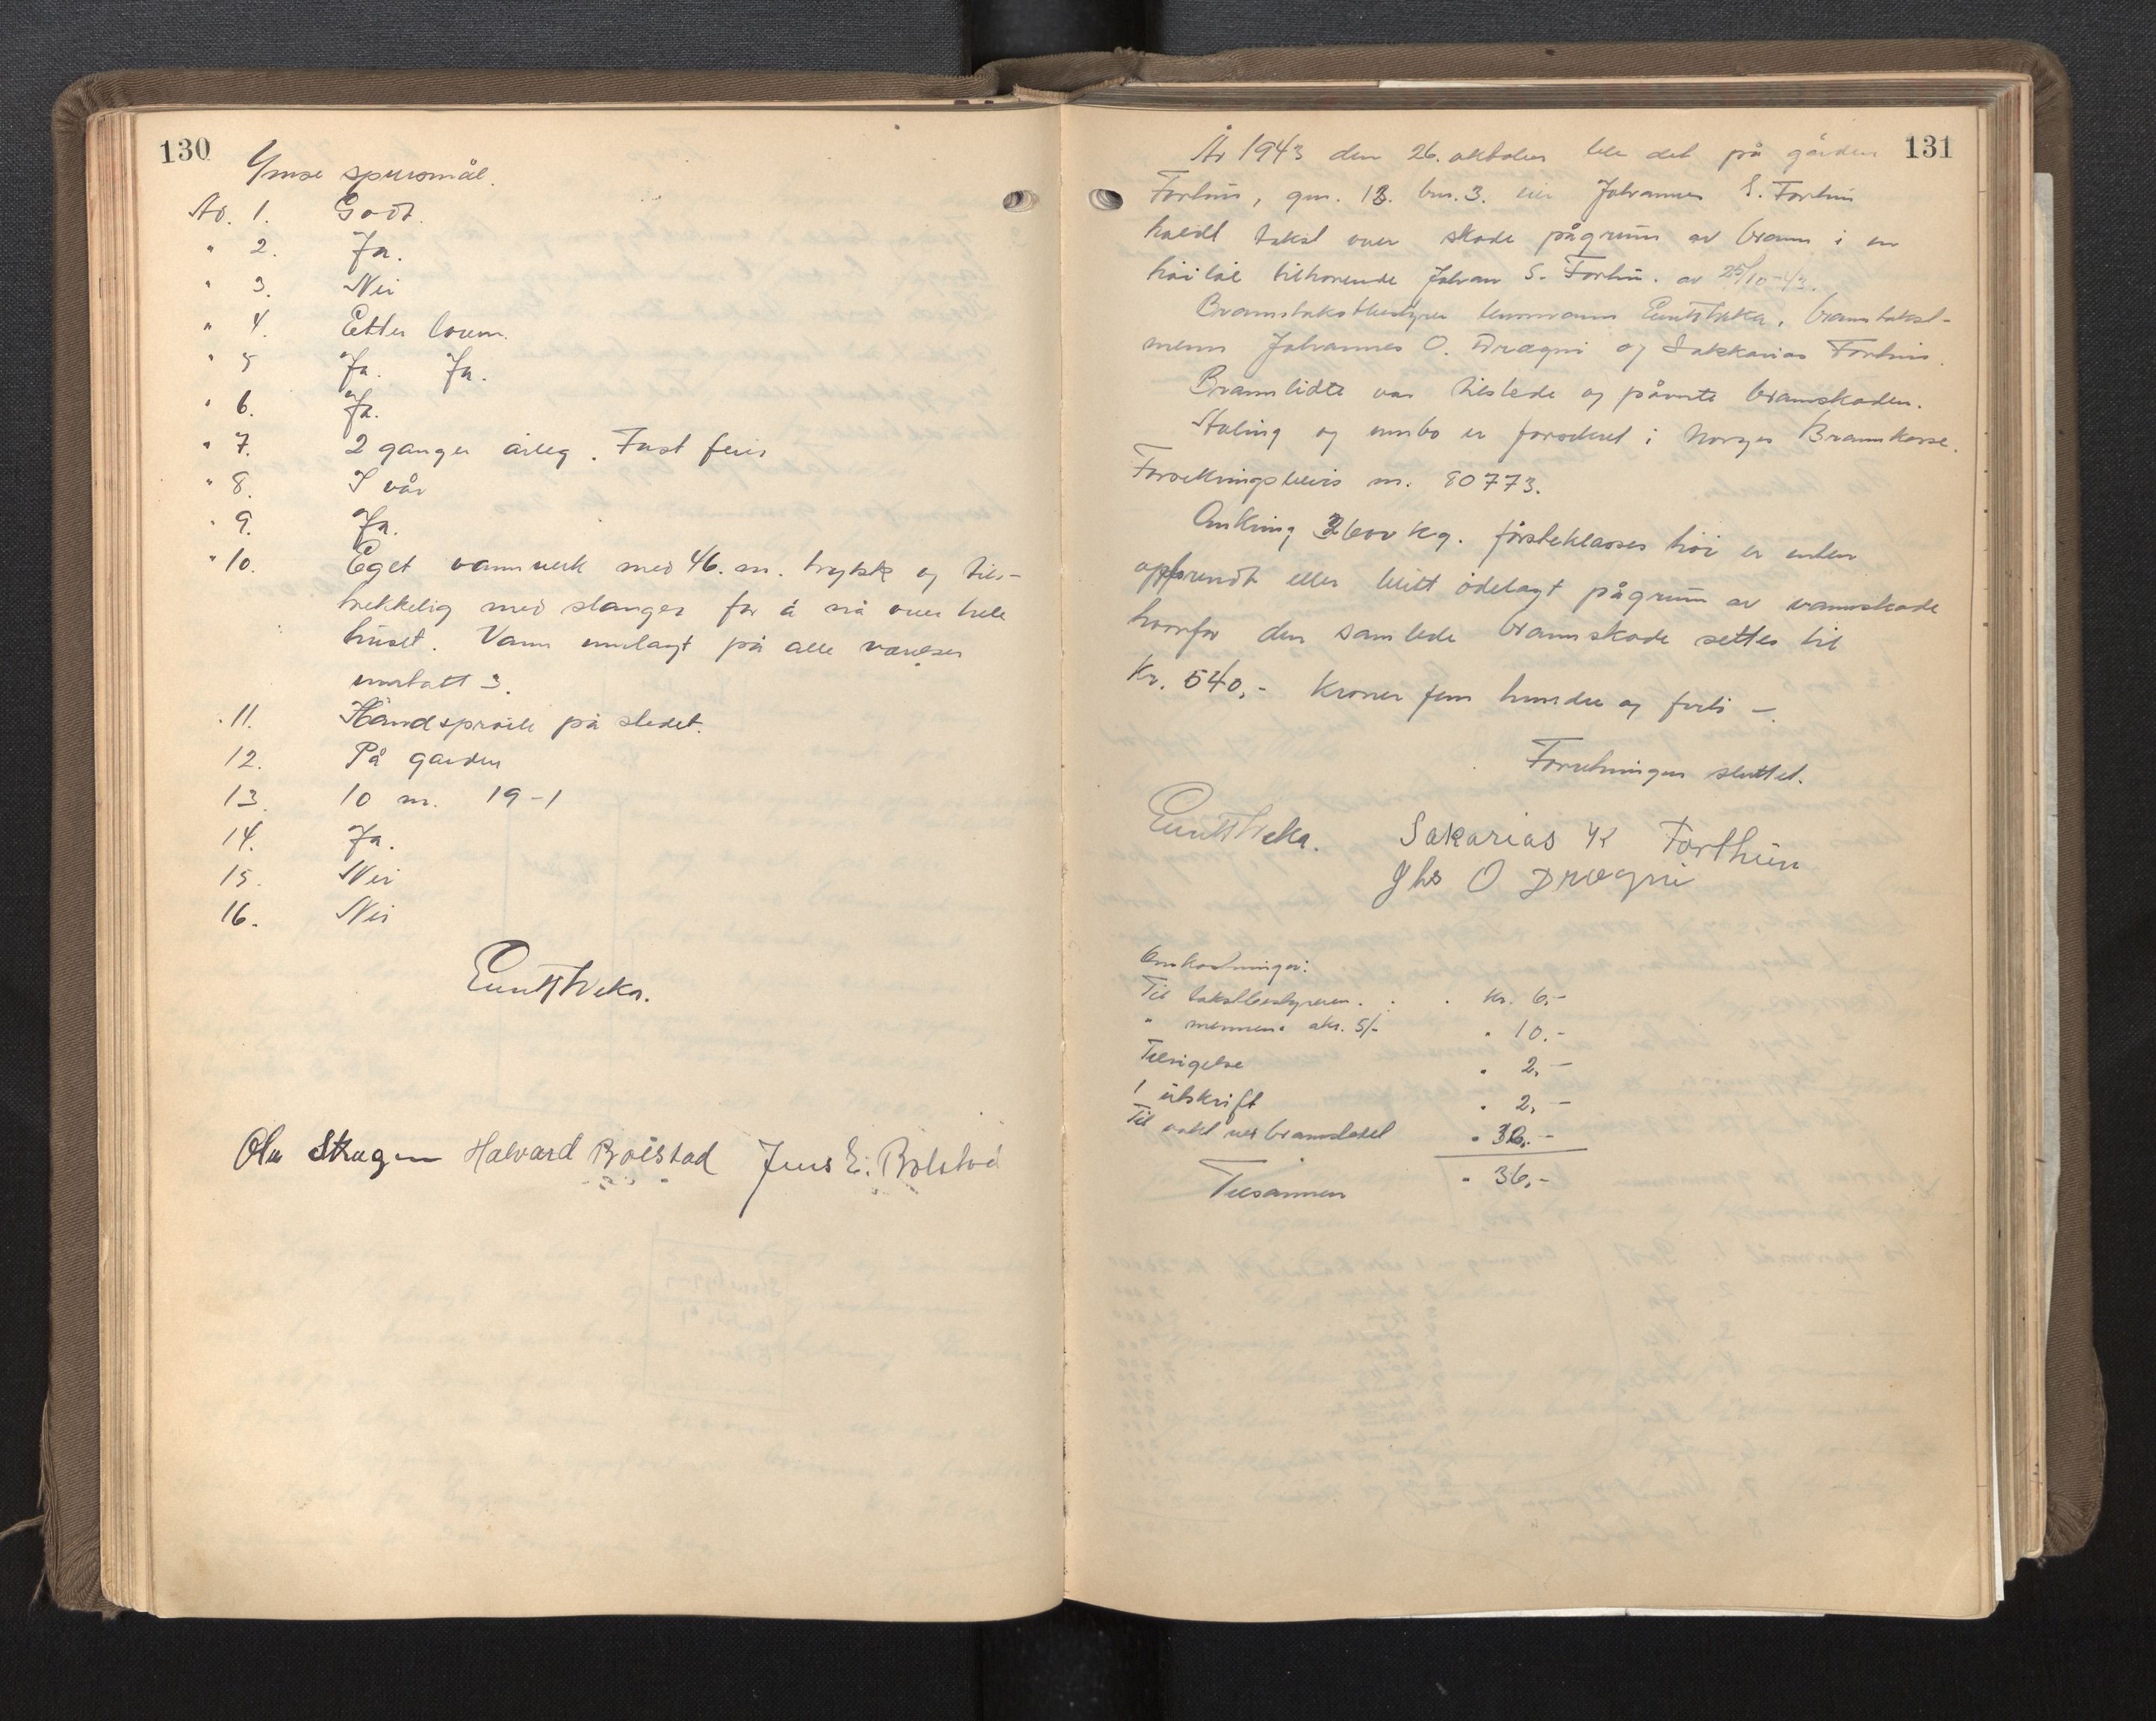 130
Ymse spursmål.
Ad. 1. Godt.
" 2. Ja.
" 3. Nei
" 4. Etter loven.
" 5 Ja. Ja.
" 6. Ja.
" 7. 2 ganger årleg. Fast feier
" 8. I vår
" 9. Ja.
" 10. Eget vannverk med 46. m. trykk og til-
trekkelig med slanger for å nå over hele
huset. Vann innlagt på alle værelser
unntatt 3.
" 11. Håndsprøite på stedet.
12. På garden
13. 10 m. 19-1
14. Ja.
15. Nei
16. Nei
Ola Skagen Halvard Bolstad Jens E. Bolstad
131
År 1943 den 26. oktober ble det på gården
Forthun, gnr. 13. bnr. 3. Johannes S. Forthun
holdt takst over skade pågrunn av brann i en
høilåe tilhørende Johan S. Forthun. av 25/10-43.
Branntakstbestyrer lensmann branntakst-
menn Johannes O. Drægni og Sakkarias Forthun.
Brannlidte var tilstede og påviste brannskaden.
Staling og innbo er forsikret i Norges Brannkasse.
Forsikringsbevis nr. 80773.
Omkring 3600 kg. førsteklasses høi er enten
oppbrendt eller blitt ødelagt pågrunn av vannskade
hvorfor den samlede brannskade settes til
Kr. 540,- Kroner fem hundre og førti -.
Forretningen sluttet.
Sakarias K Forthun
Jhs O Drægni
Omkostninger:
Til takstbestyreren . . . Kr. 6,-
" mennene akr. 5/- " 10.-
Tilsigelse " 2,-
1 utskrift " 2,-
Til vakt ved brannstedet " 16.-
Tilsammen " 36,-